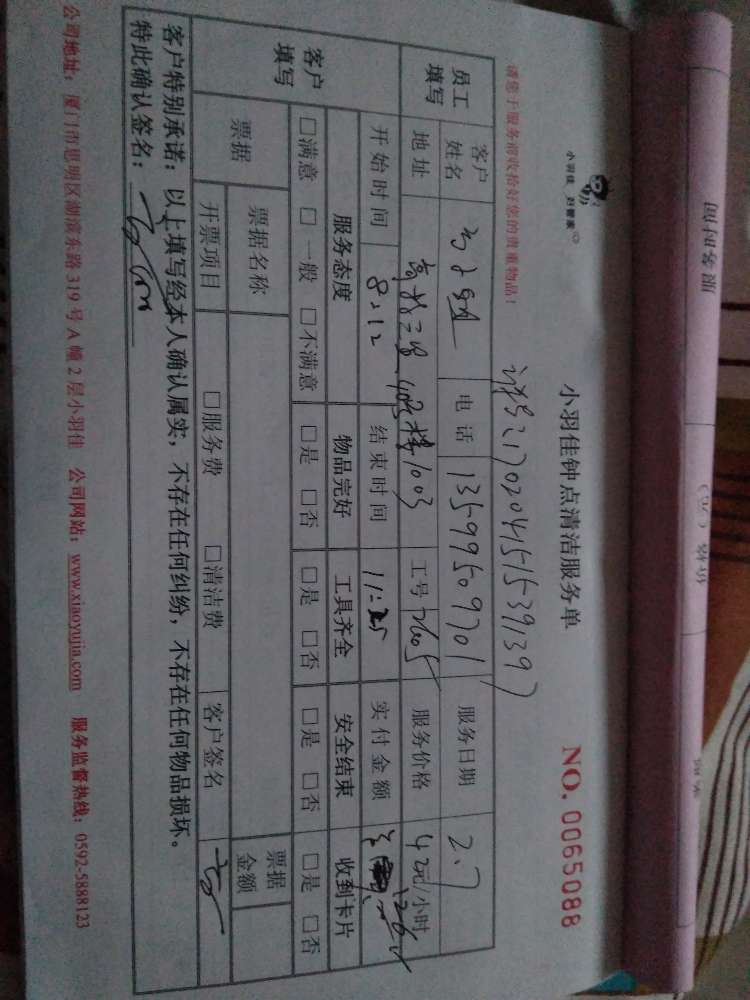 小羽佳 好管家
小羽佳钟点清洁服务单
NO. 0065088
请您于服务前收拾好您的贵重物品!
员工填写
客户姓名
电话 13599509701
服务日期 2.7
地址
工号 7605
服务价格 42元/小时
客户填写
开始时间 8:12
结束时间 11:25
实付金额
服务态度 物品完好 工具齐全 安全结束 收到卡片
□满意 □一般 □不满意 □是 □否 □是 □否 □是 □否 □是 □否
票据
票据名称
票据金额
开票项目 □服务费 □清洁费 客户签名
客户特别承诺:以上填写经本人确认属实,不存在任何纠纷,不存在任何物品损坏。
特此确认签名:
公司地址:厦门市思明区湖滨东路319号A幢2层小羽佳 公司网站:www.xiaoyujia.com 服务监督热线:0592-5888123